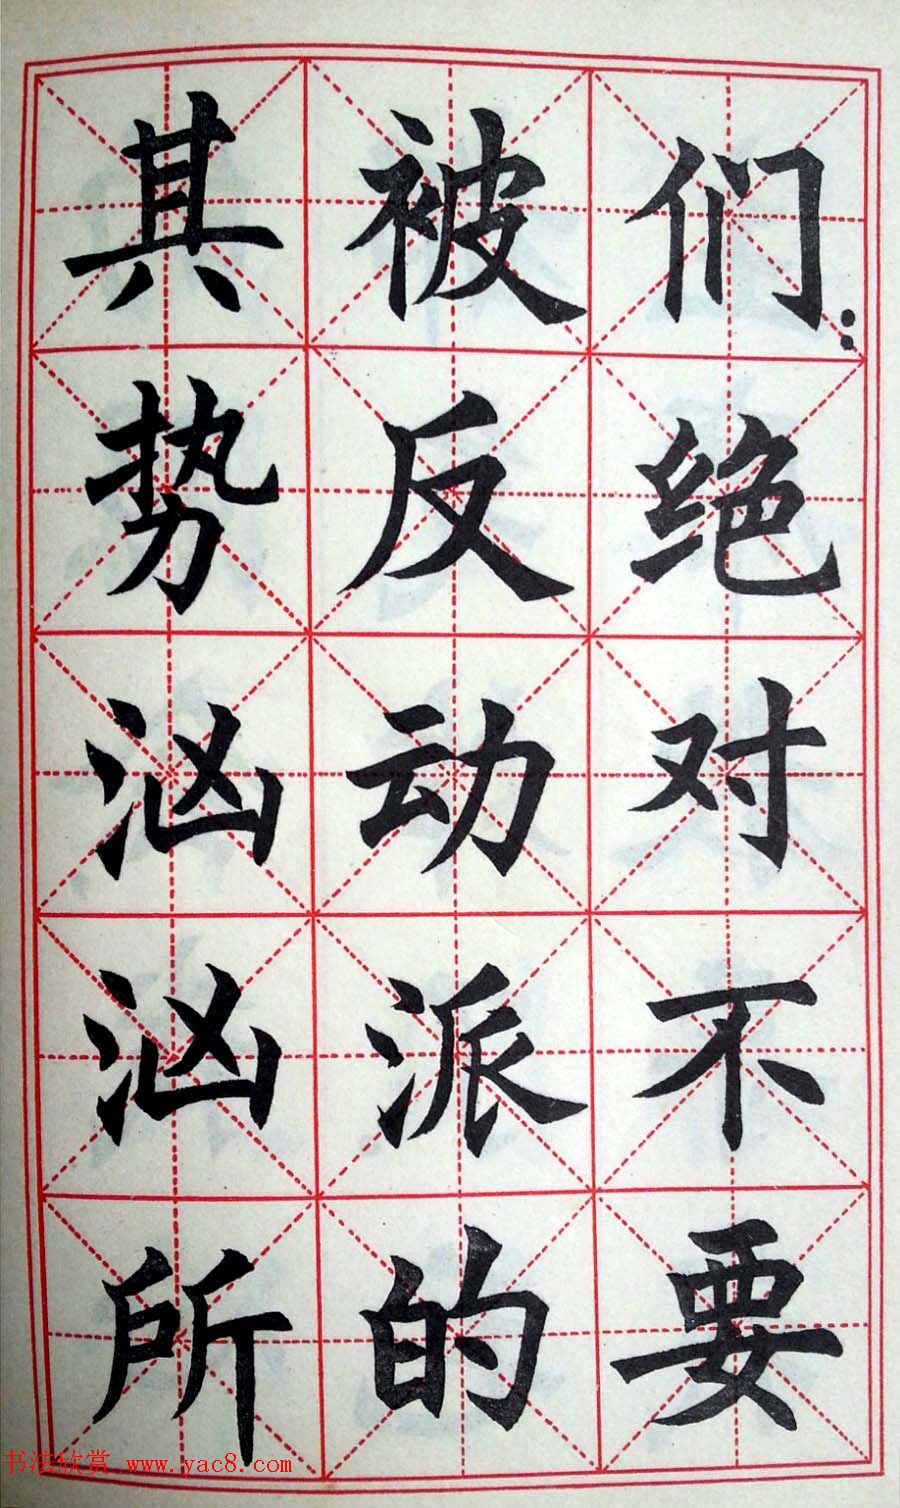 们：绝对不要
被反动派的
其势汹汹所
书法欣赏 www.yac8.com